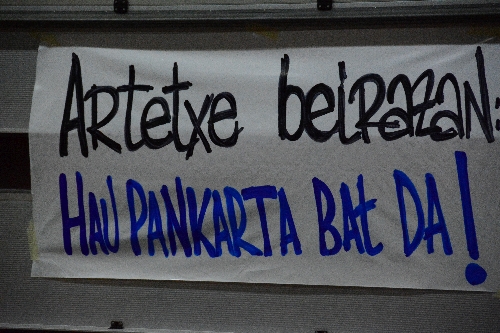 Artetxe beirazan:
HAU PANKARTA BAt DA!